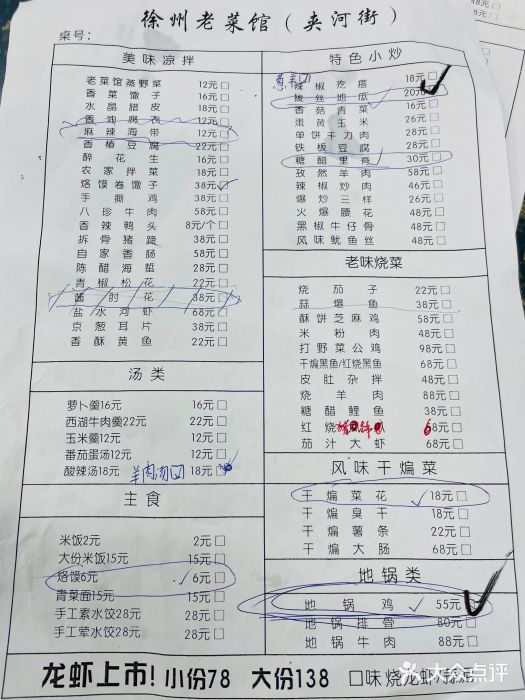 徐州老菜馆（夹河街）
桌号：
美味凉拌
老菜馆蒸野菜 12元□
香菜馓子 16元□
水晶腊皮 18元□
香油腐衣 12元□
麻辣海带 12元□
香椿豆腐 22元□
醉花生 16元□
农家拌菜 18元□
烙馍卷馓子 38元□
手撕鸡 38元□
八珍牛肉 58元□
香辣鸭头 8元/个□
拆骨猪蹄 38元□
自家香肠 58元□
陈醋海蜇 28元□
青椒松花 22元□
酱肘花 38元□
盐水河虾 68元□
京葱耳片 38元□
香酥黄鱼 22元□
汤类
萝卜羹16元 16元□
西湖牛肉羹22元 22元□
玉米羹12元 12元□
番茄蛋汤12元 12元□
酸辣汤18元 羊肉汤 18元□
主食
米饭2元 2元□
大份米饭15元 15元□
烙馍6元 6元□
青菜面15元 15元□
手工素水饺28元 28元□
手工荤水饺28元 28元□
特色小炒
辣椒疙瘩 18元□
拔丝地瓜 20元□
香菇青菜 16元□
蛋黄玉米 26元□
单饼干刀肉 28元□
铁板豆腐 28元□
糖醋里脊 30元□
孜然羊肉 58元□
辣椒炒肉 46元□
爆炒三样 26元□
火爆腰花 48元□
黑椒牛仔骨 48元□
风味鱿鱼丝 48元□
老味烧菜
烧茄子 22元□
蒜爆鱼 38元□
酥饼芝麻鸡 58元□
米粉肉 48元□
打野菜公鸡 98元□
干煸黑鱼/红烧黑鱼 68元□
皮肚杂拌 48元□
烧羊肉 88元□
糖醋鲤鱼 38元□
红烧 68元□
茄汁大虾 68元□
风味干煸菜
干煸菜花 18元□
干煸臭干 18元□
干煸薯条 22元□
干煸大肠 68元□
地锅类
地锅鸡 55元□
地锅排骨 80元□
地锅牛肉 88元□
龙虾上市！小份78 大份138 口味烧龙虾/蒜
大众点评